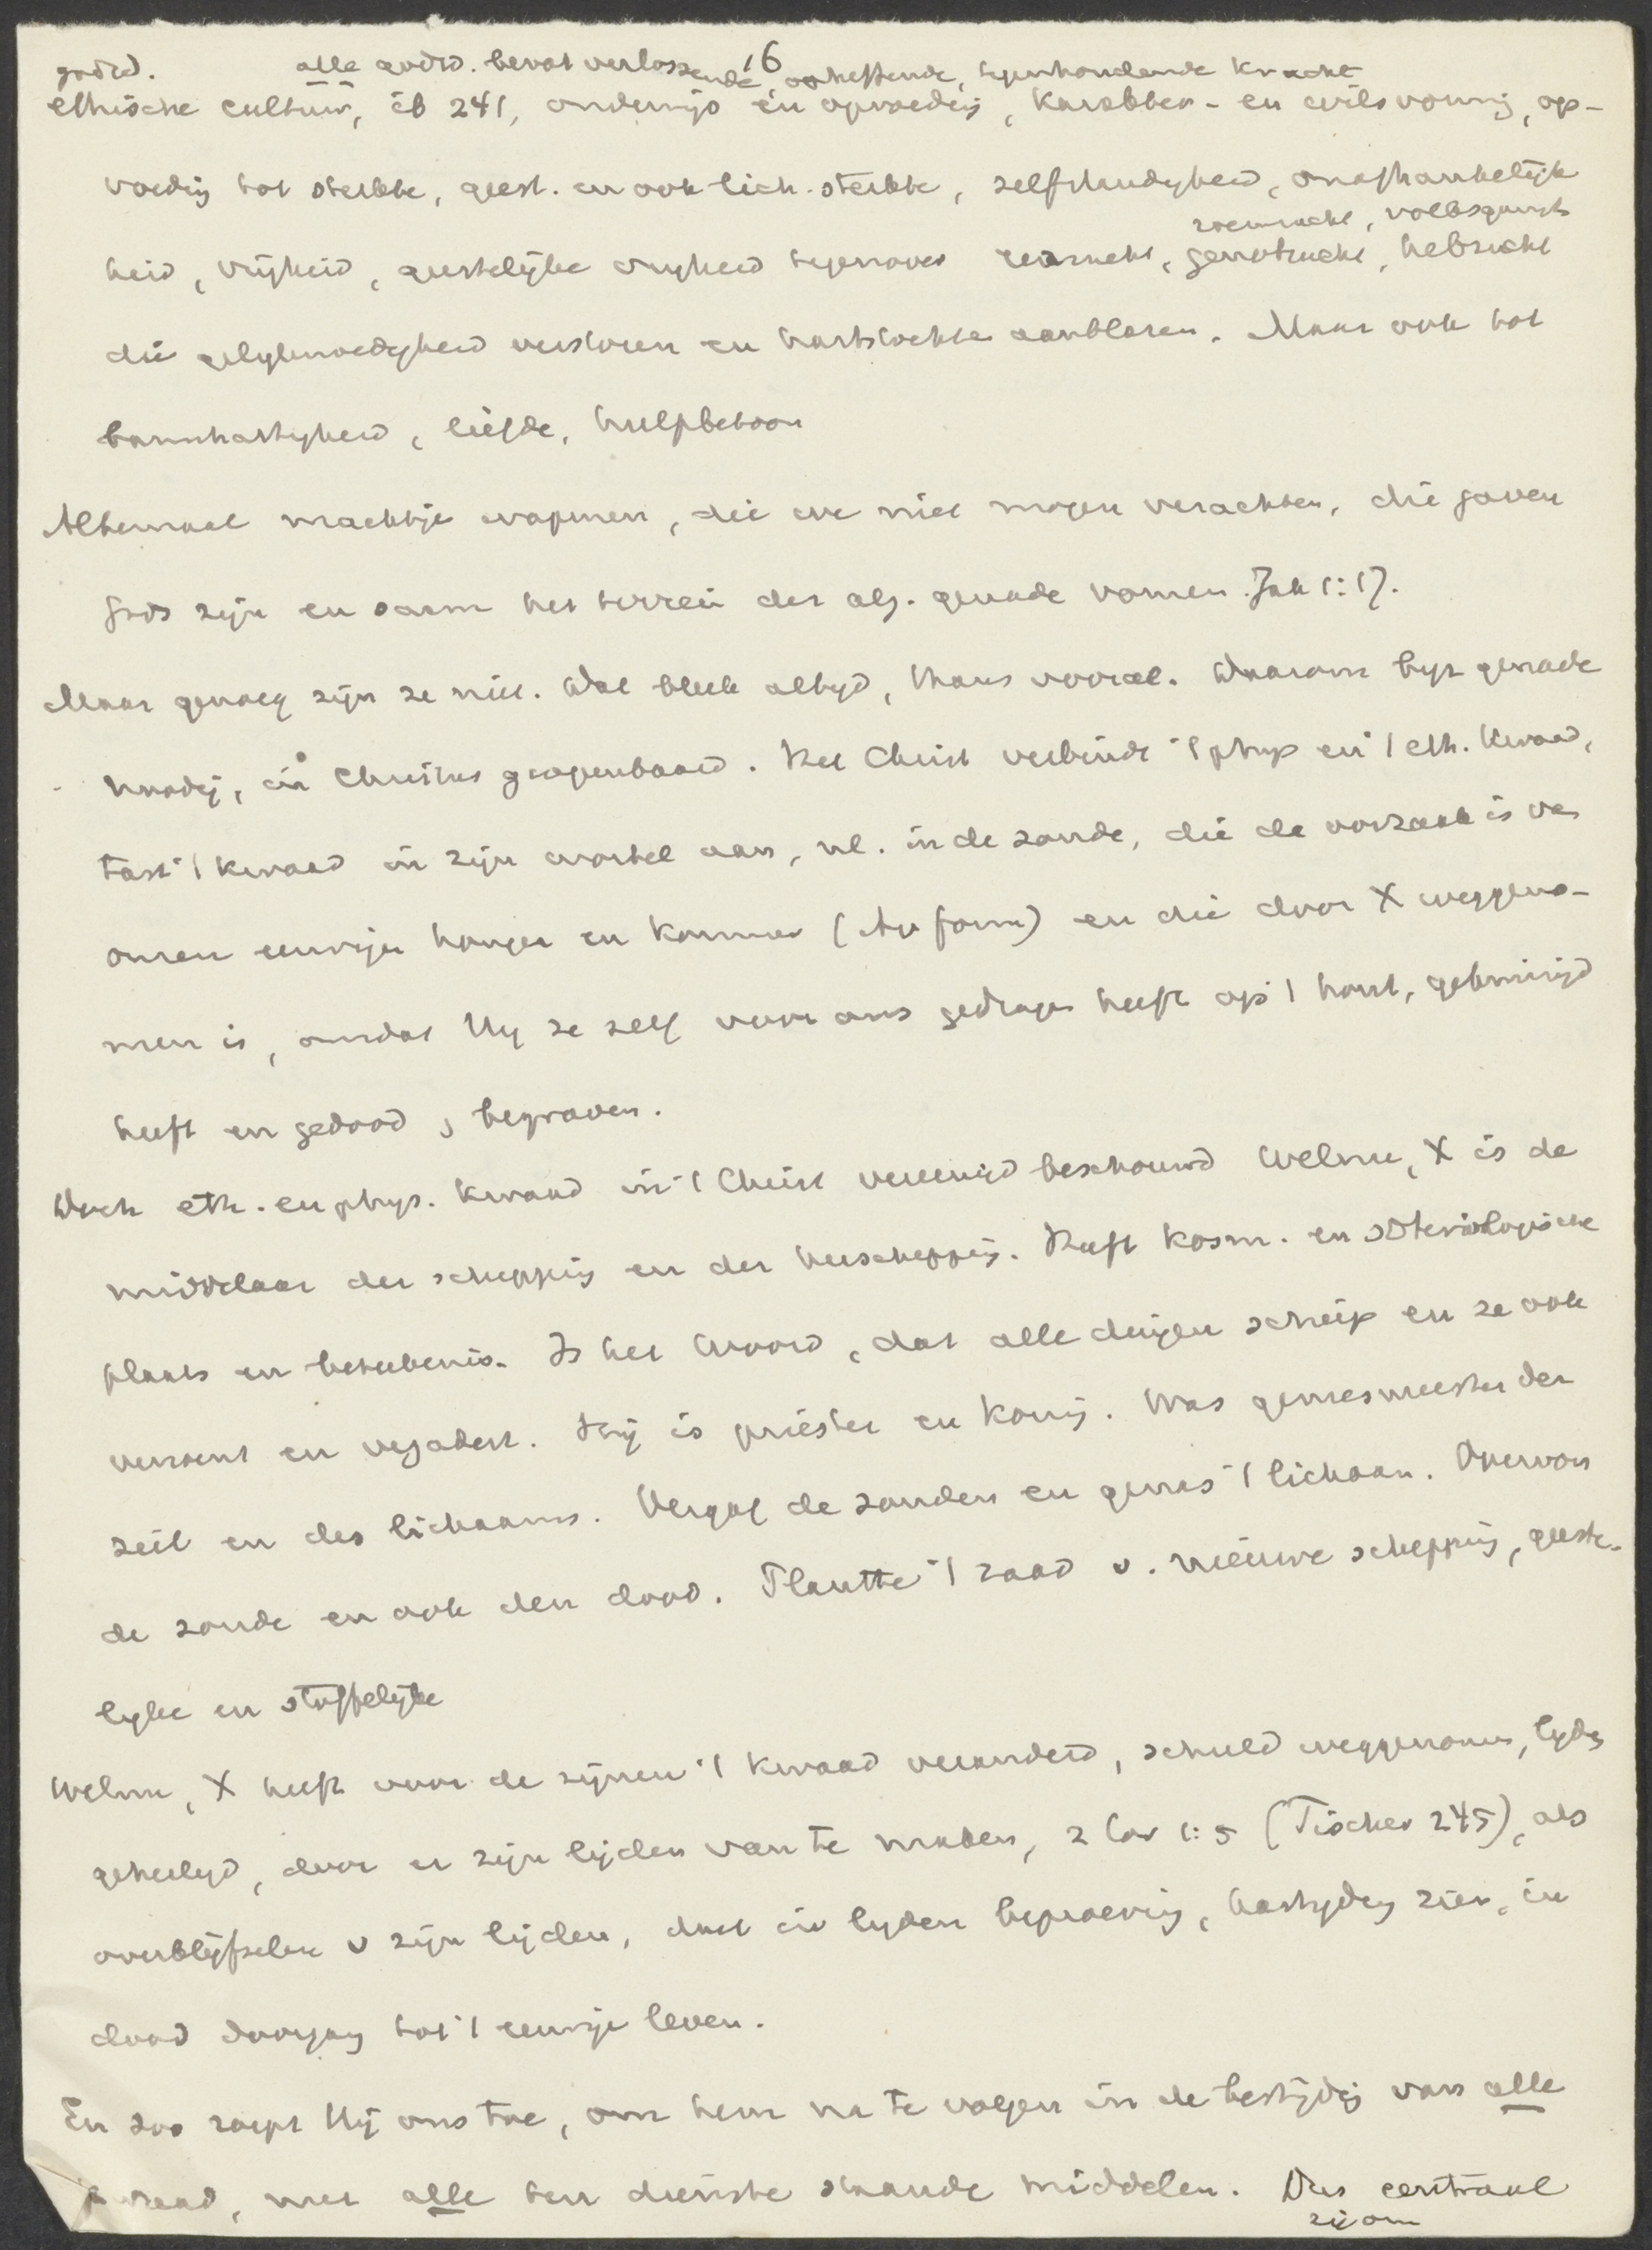 16
godsd. alle godsd. bevat verlossende opheffende, tegenhoudende kracht
ethische cultuur, ib 241, onderwijs en opvoedig, karakter- en wilsvormig, op-
voedig tot sterkte, geest. en ook lich. sterkte, zelfstandigheid, onafhankelijk
roemzucht, volksgunst
heid, vrijheid, geestelijke vrijheid tegenover eerzucht, genotzucht, hebzucht
die gelijkmoedigheid verstoren en hartstochten aanblazen. Maar ook tot
barmhartigheid, liefde, hulpbetoon
Altemaal machtige wapenen, die we niet mogen verachten, die gaven
Gods zijn en saam het terrein der alg. genade vormen. Jak 1:17.
Maar genoeg zijn ze niet. Dat bleek altijd, thans vooral. Daarom byz genade
noodig, in Christus geopenbaard. Het Christ verbindt 't phys en 't eth. kwaad,
tast 't kwaad in zijn wortel aan, nl. in de zonde, die de oorzaak is van
onzen eeuwigen honger en kommer (Av form) en die door X weggeno-
men is, omdat Hij ze zelf voor ons gedragen heeft op 't hout, gekruisigd
heeft en gedood, begraven.
Doch eth. en phys. kwaad in 't Christ vereenigd beschouwd Welnu, X is de
middelaar der schepping en der herschepping. Heeft kosm. en soteriologische
plaats en beteekenis. Is het Woord, dat alle dingen schiep en ze ook
verzoent en vergadert. Hij is priester en koning. Was geneesmeester der
ziel en des lichaams. Vergaf de zonden en genas 't lichaam. Overwon
de zonde en ook den dood. Plantte 't zaad v. nieuwe schepping, geeste-
lijke en stoffelijke
Welnu, X heeft voor de zijnen 't kwaad veranderd, schuld weggenomen, lijdg
geheiligd, door er zijn lijden van te maken, 2 Cor 1:5 (Tischer 245), als
overblijfselen v zijn lijden, doet in lijden beproeving, kastijding zien, in
dood doorgang tot 't eeuwige leven.
En zoo roept Hij ons toe, om hem na te volgen in de bestrijdig van alle
kwaad, met alle ten dienste staande middelen. Dus centraal
zijom